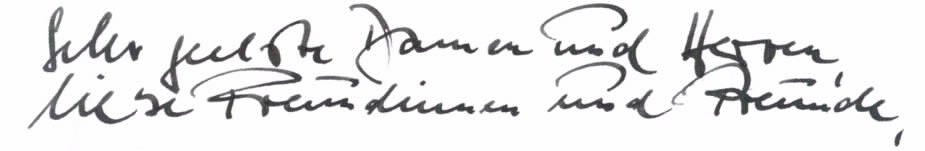 Sehr geehrte Damen und Herren
liebe Freundinnen und Freunde,